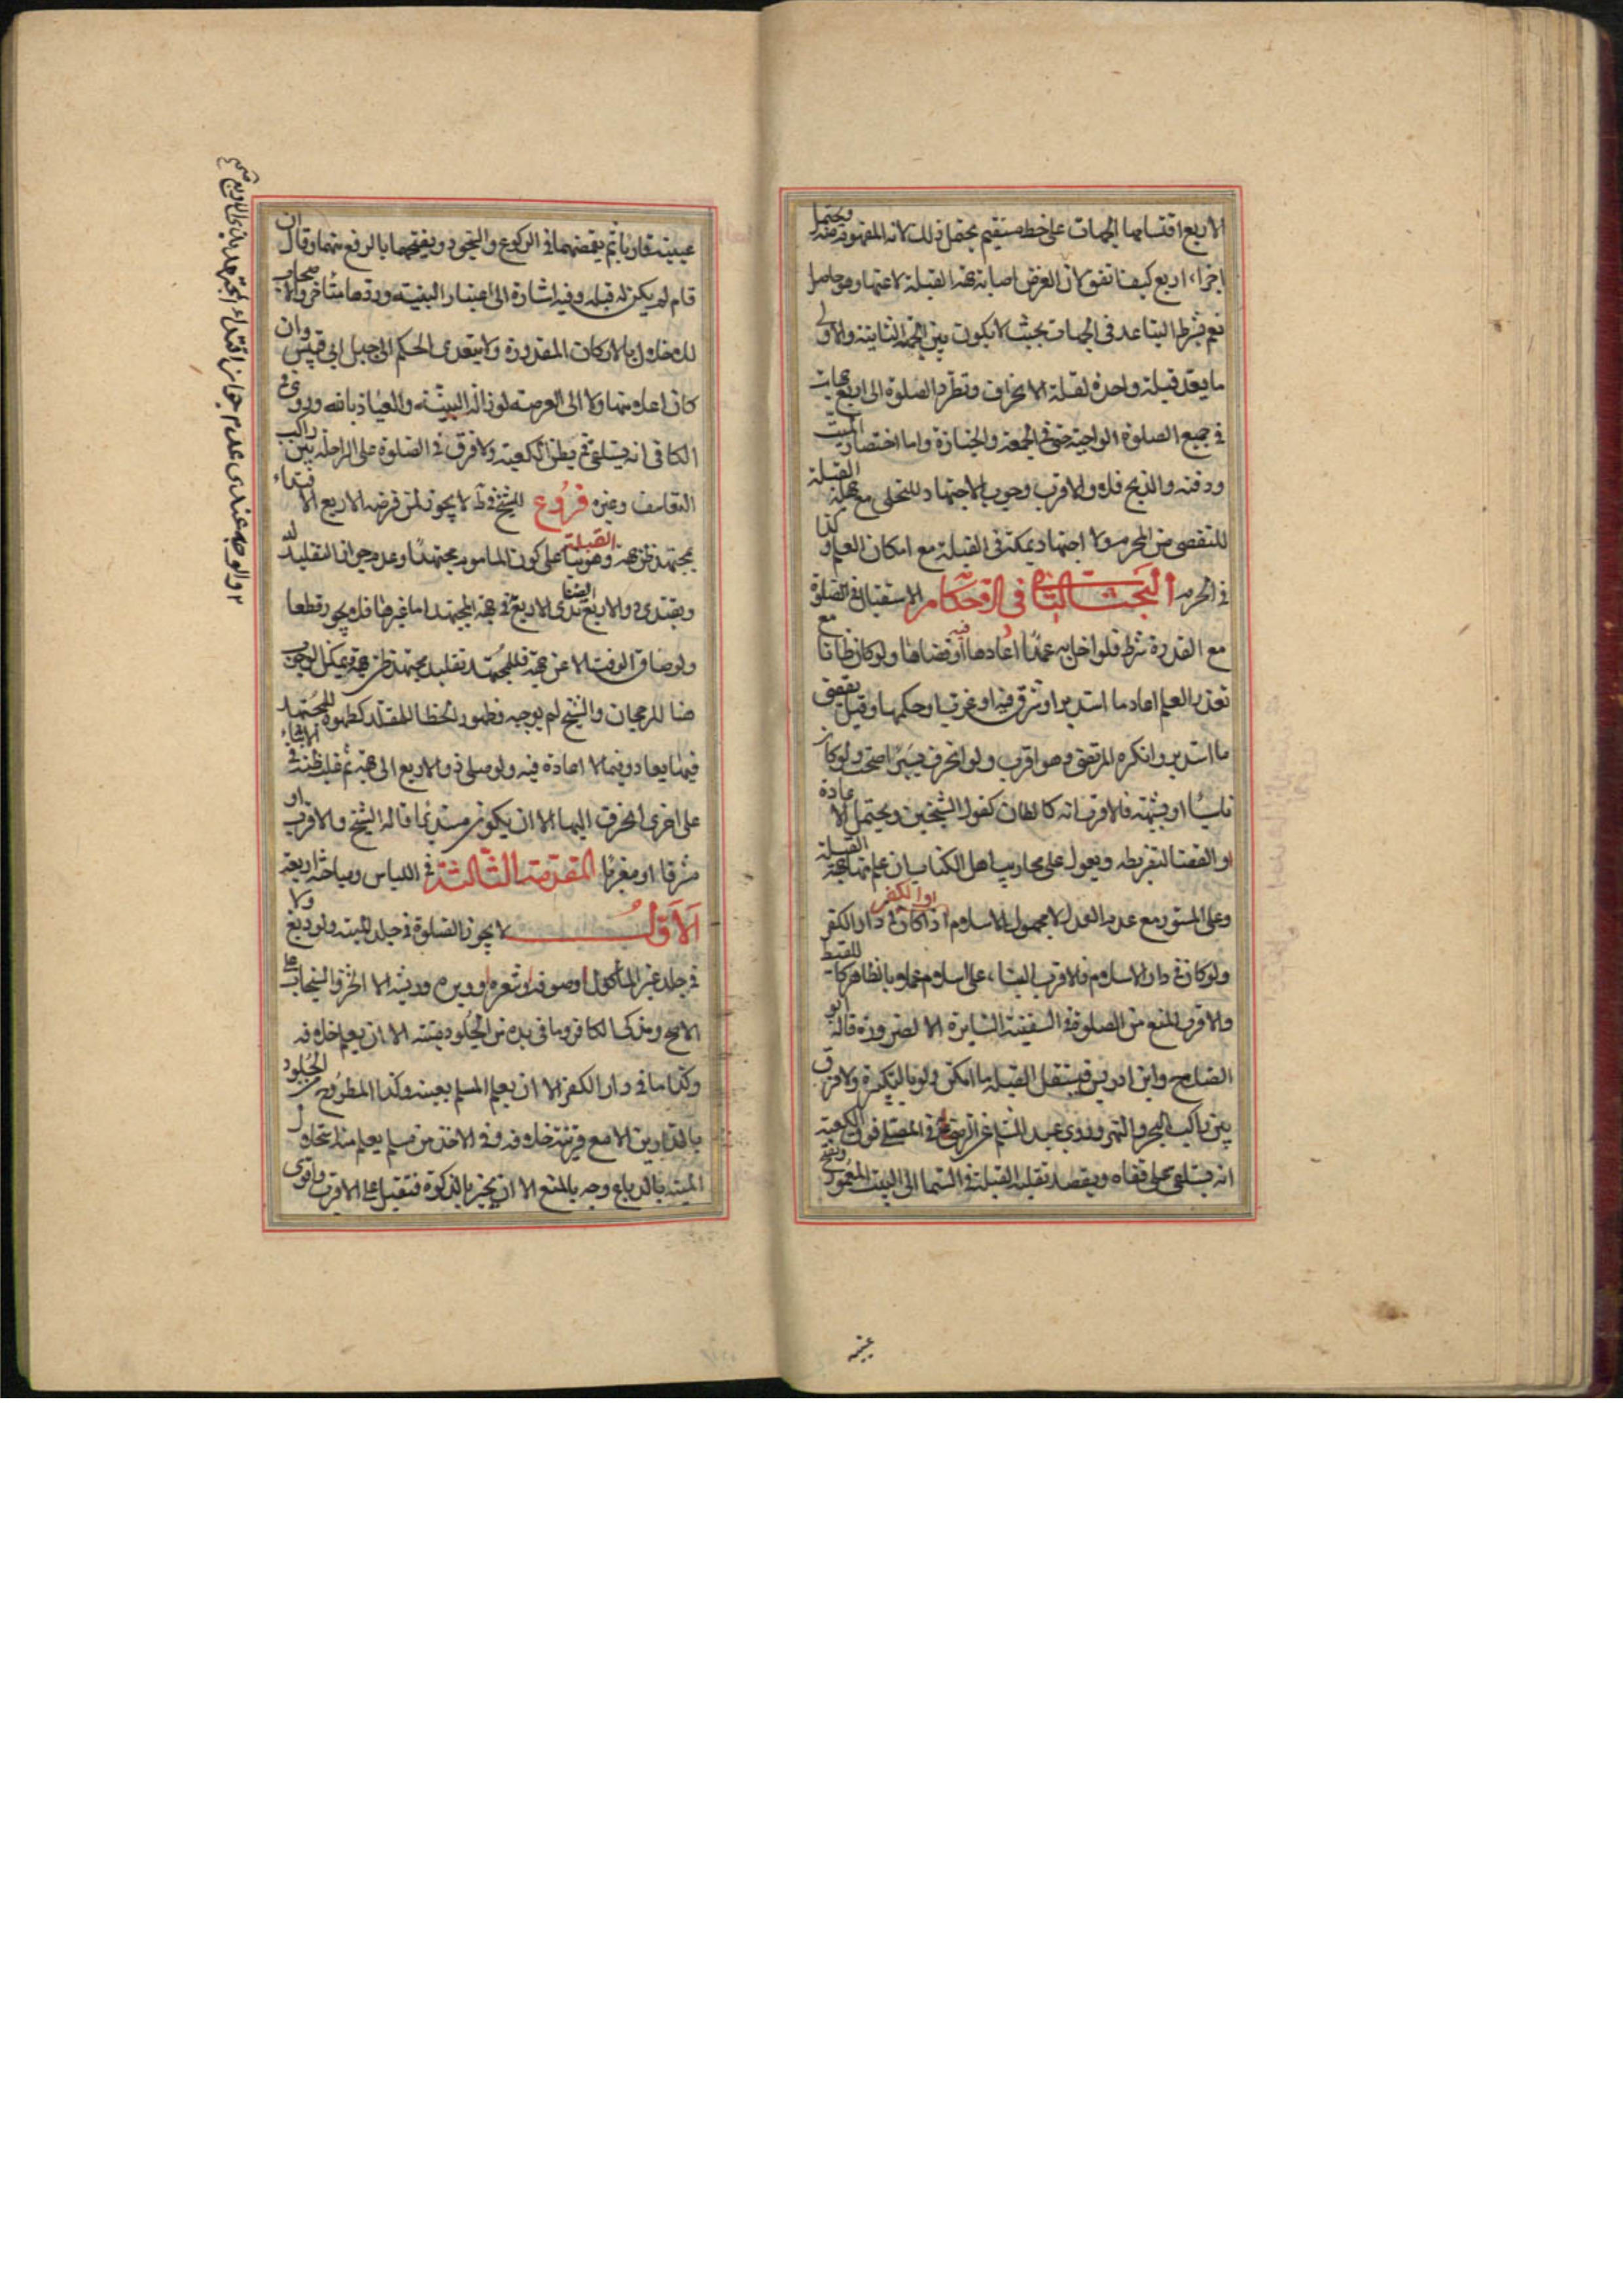 الاربع اقتسامها الجهات على خط مستقيم يحتمل ذلك لانه المفهوم منه ويحتمل
اجزاء اربع كيف اتفق لان الغرض اصابة جهة القبلة لا عينها وهو حاصل
نعم يشترط التباعد في الجهات بحيث لا يكون بين الجهة الثانية والاولى
ما يعد قبلة واحدة لقلة الانحراف وتطرد الصلوة الى اربع جهات
في جميع الصلوة الواجبة حتى في الجمعة والجنازة واما احتضار الميت
ودفنه والذبح فلا والاقرب وجوب الاجتهاد للتخلي مع جهله القبلة
للتفصي من المحرم ولا اجتهاد بمكة في القبلة مع امكان العلم وكذا
في الحرم البحث الثاني في الاحكام الاستقبال في الصلوة
مع القدرة شرط فلو اخل به عمدا اعادها او قضاها ولو كان ظانا مع
تعذر العلم اعاد ما استدبر او شرق فيه او غرب او حكمها وقيل يقضى
ما استدبر وانكره المرتضى وهو اقرب ولو انحرف يسيرا صحت ولو كان
ناسيا او بشبهة فالاقرب انه كالظان كقول الشيخين ويحتمل الاعادة
او القضا لتفريطه ويعول على محاريب اهل الكتاب ان علم تها جهة القبلة
وعلى المستور مع عدم العدل لا مجهول الاسلام اذا كان في دار الكفر
ولو كان في دار الاسلام فالاقرب البناء على اسلامه عملا بالظاهر كاللقيط
والاقرب المنع من الصلوة في السفينة السايرة الا لضرورة قاله ابو
الصلاح وابن ادريس فيستقبل القبلة ما امكن ولو بالتكبيرة ولا فرق
بين راكب البحر والنهر وروى عبد السلم عن الرضا في المصلي فوق الكعبة
انه يستلقي على قفاه ويقصد بقلبه القبلة في السما الى البيت المعمور ويفتح
عينيه
عينيه قاريا ثم يغمضهما في الركوع والسجود ويفتحهما بالرفع منهما وقال ان
قام لم يكن له قبلة وفيه اشارة الى اعتبار البنية وردها متأخروا الاصحاب
للاخلال بالاركان المقدورة ولا يتعدى الحكم الى جبل ابي قبيس وان
كان اعلا منها ولا الى العرصة لو زالت البنية والعياذ بالله وروى في
الكافي انه يستلقي ثم يصلي الكعبة ولا فرق في الصلوة على الراحلة بين راكب
التعاسيف وغيره فروع للشيخ في ط لا يجوز لمن فرضه الاربع الاقتداء
بمجتهد ظن جهة القبلة وهو بنا على كون المأموم مجتهدا وعدم جواز التقليد له
ويقتدي ذو الاربع بذي الاربع ايضا في جهة المجتهد اما غيرها فلا يجوز قطعا
ولو ضاق الوقت الا عن جهة فللمجتهد تقليد مجتهد ظن جهة ويمكن الوجوب
هنا للرجحان والشيخ لم يوجبه وظهور الخطا للمقلد كظهوره للمجتهد
فيما يعاد وفيما لا اعادة فيه ولو صلى ذو الاربع الى جهة ثم غلب ظنه في الاثناء
على اخرى انحرف اليها الا ان يكون مستدبرا قاله الشيخ والاقرب او
مشرقا او مغربا المقدمة الثالثة في اللباس ومباحثه اربعة
الاول لا يجوز الصلوة في جلد الميتة ولو دبغ ولا
في جلد غير المأكول او صوفه او شعره او وبره او ريشه الا الخز والسنجاب على
الاصح ومذكى الكافر وما في يده من الجلود ميتة الا ان يعلم خلافه
وكذا ما في دار الكفر الا ان يعلم المسلم بعينه وكذا المطروح من الجلود
بالدارين الا مع قرينة خلافه وفي الاخذ من مسلم يعلم منه استحلال
الميتة بالدباغ وجه بالمنع الا ان يخبر بالذكوة فيقبل على الاقرب واقوى
والوجه عندي عدم جواز اقتداء المجتهد بذي الاربع